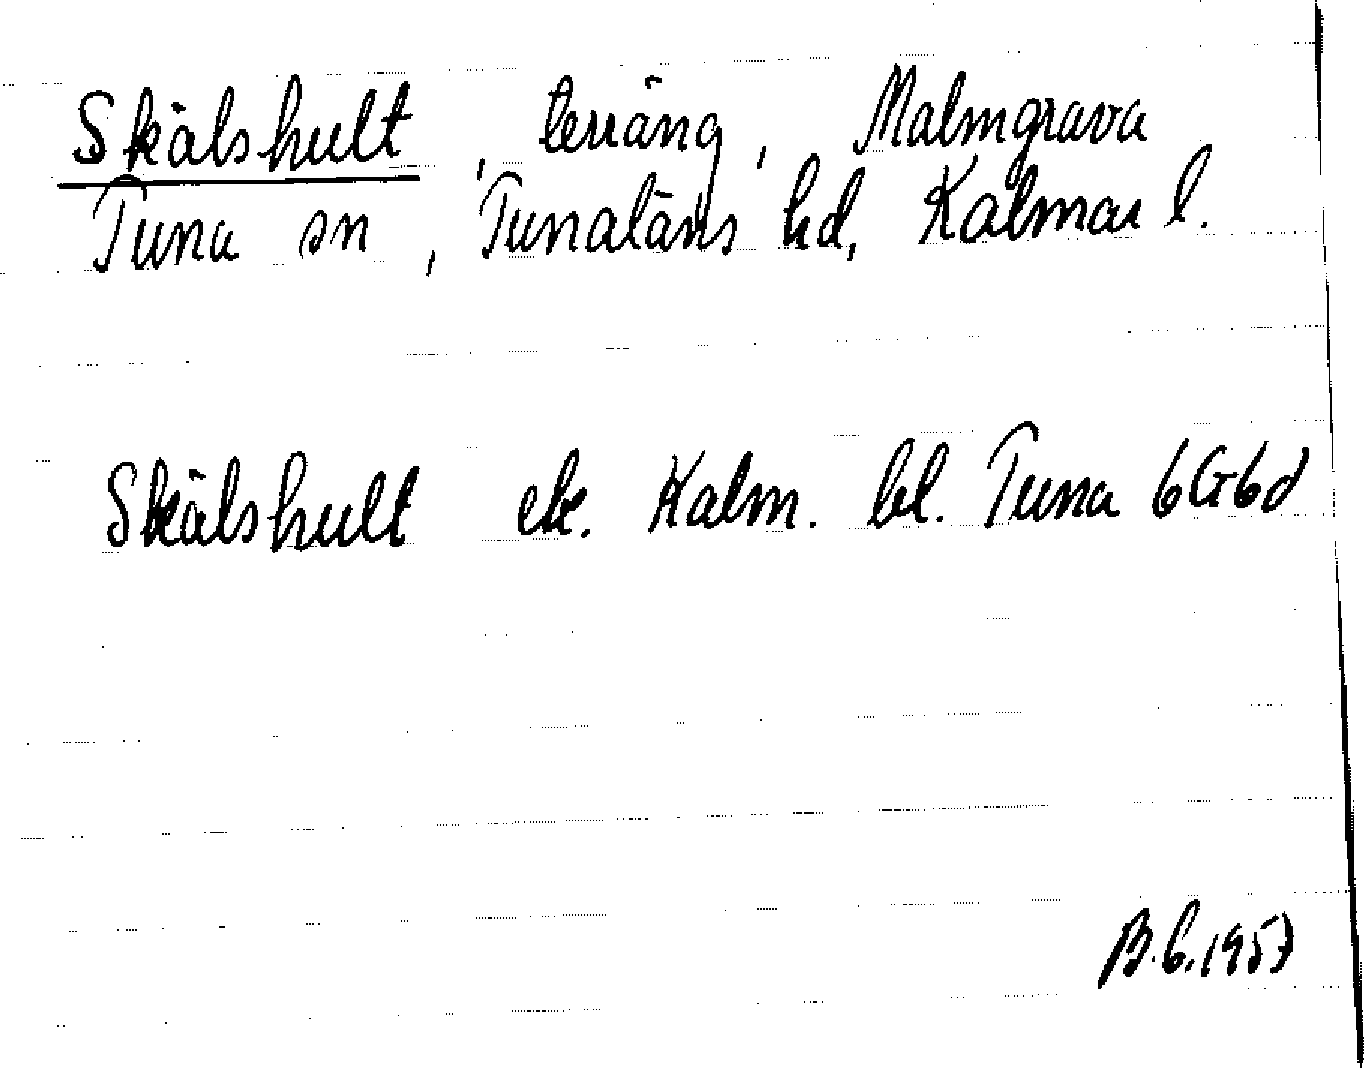 Skälshult, terräng, Malmgrava
Tuna sn, Tunaläns hd, Kalmar l.
Skälshult ek. Kalm. bl. Tuna 6G6d
B.G. 1957